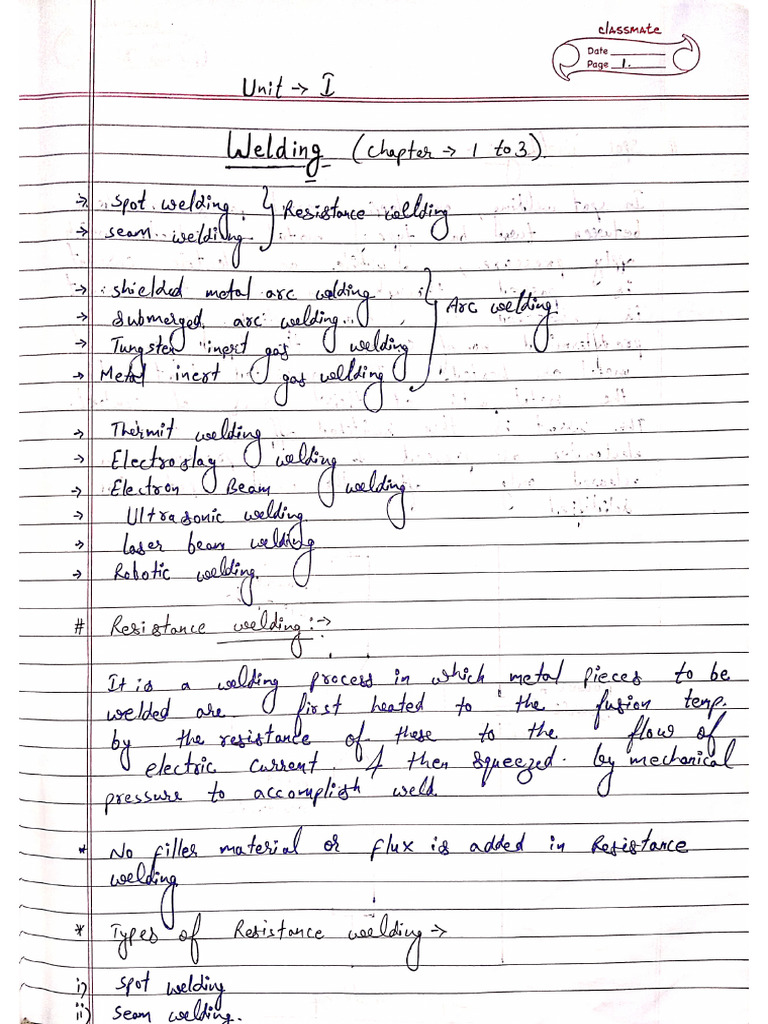 classmate
Date
Page 1.
Unit → I
Welding (Chapter → 1 to 3).
→ Spot welding } Resistance welding
→ seam welding.
→ shielded metal arc welding } Arc welding
→ Submerged arc welding
→ Tungsten inert gas welding
→ Metal inert gas welding
→ Thermit welding
→ Electroslag welding
→ Electron Beam welding.
→ Ultrasonic welding
→ Laser beam welding
→ Robotic welding.
# Resistance welding :→
It is a welding process in which metal pieces to be
welded are first heated to the fusion temp.
by the resistance of these to the flow of
electric current & then squeezed by mechanical
pressure to accomplish weld.
* No filler material or flux is added in Resistance
welding
* Types of Resistance welding →
i) Spot welding
ii) Seam welding.